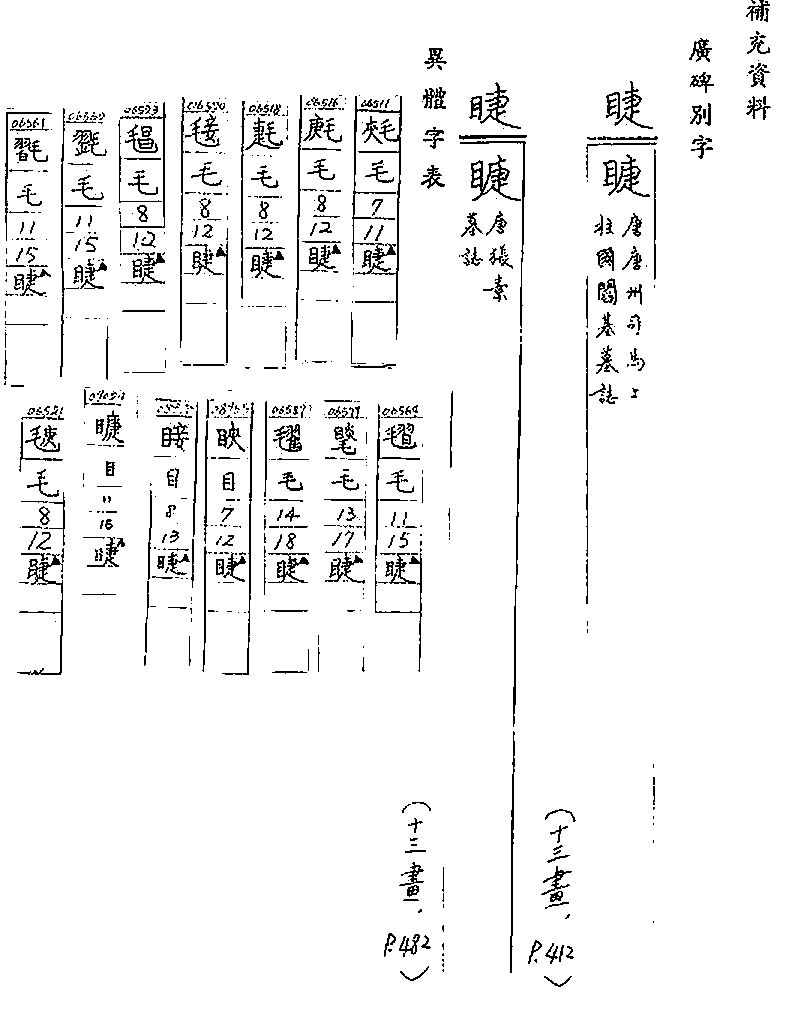 補充資料
廣碑別字
睫
睫
唐唐州司馬上
柱國閻基墓誌
(十三畫，P.412)
睫
睫
唐張素
墓誌
(十三畫，P.482)
異體字表
06511
毛
7
11
睫▲
06516
毛
8
12
睫▲
06518
毛
8
12
睫▲
毛
8
12
睫▲
06553
毛
8
12
睫▲
06560
毛
11
15
睫▲
06561
毛
11
15
睫▲
06564
毛
11
15
睫▲
06577
毛
13
17
睫▲
06587
毛
14
18
睫▲
目
7
12
睫▲
目
8
13
睫▲
目
11
16
睫▲
06521
毛
8
12
睫▲